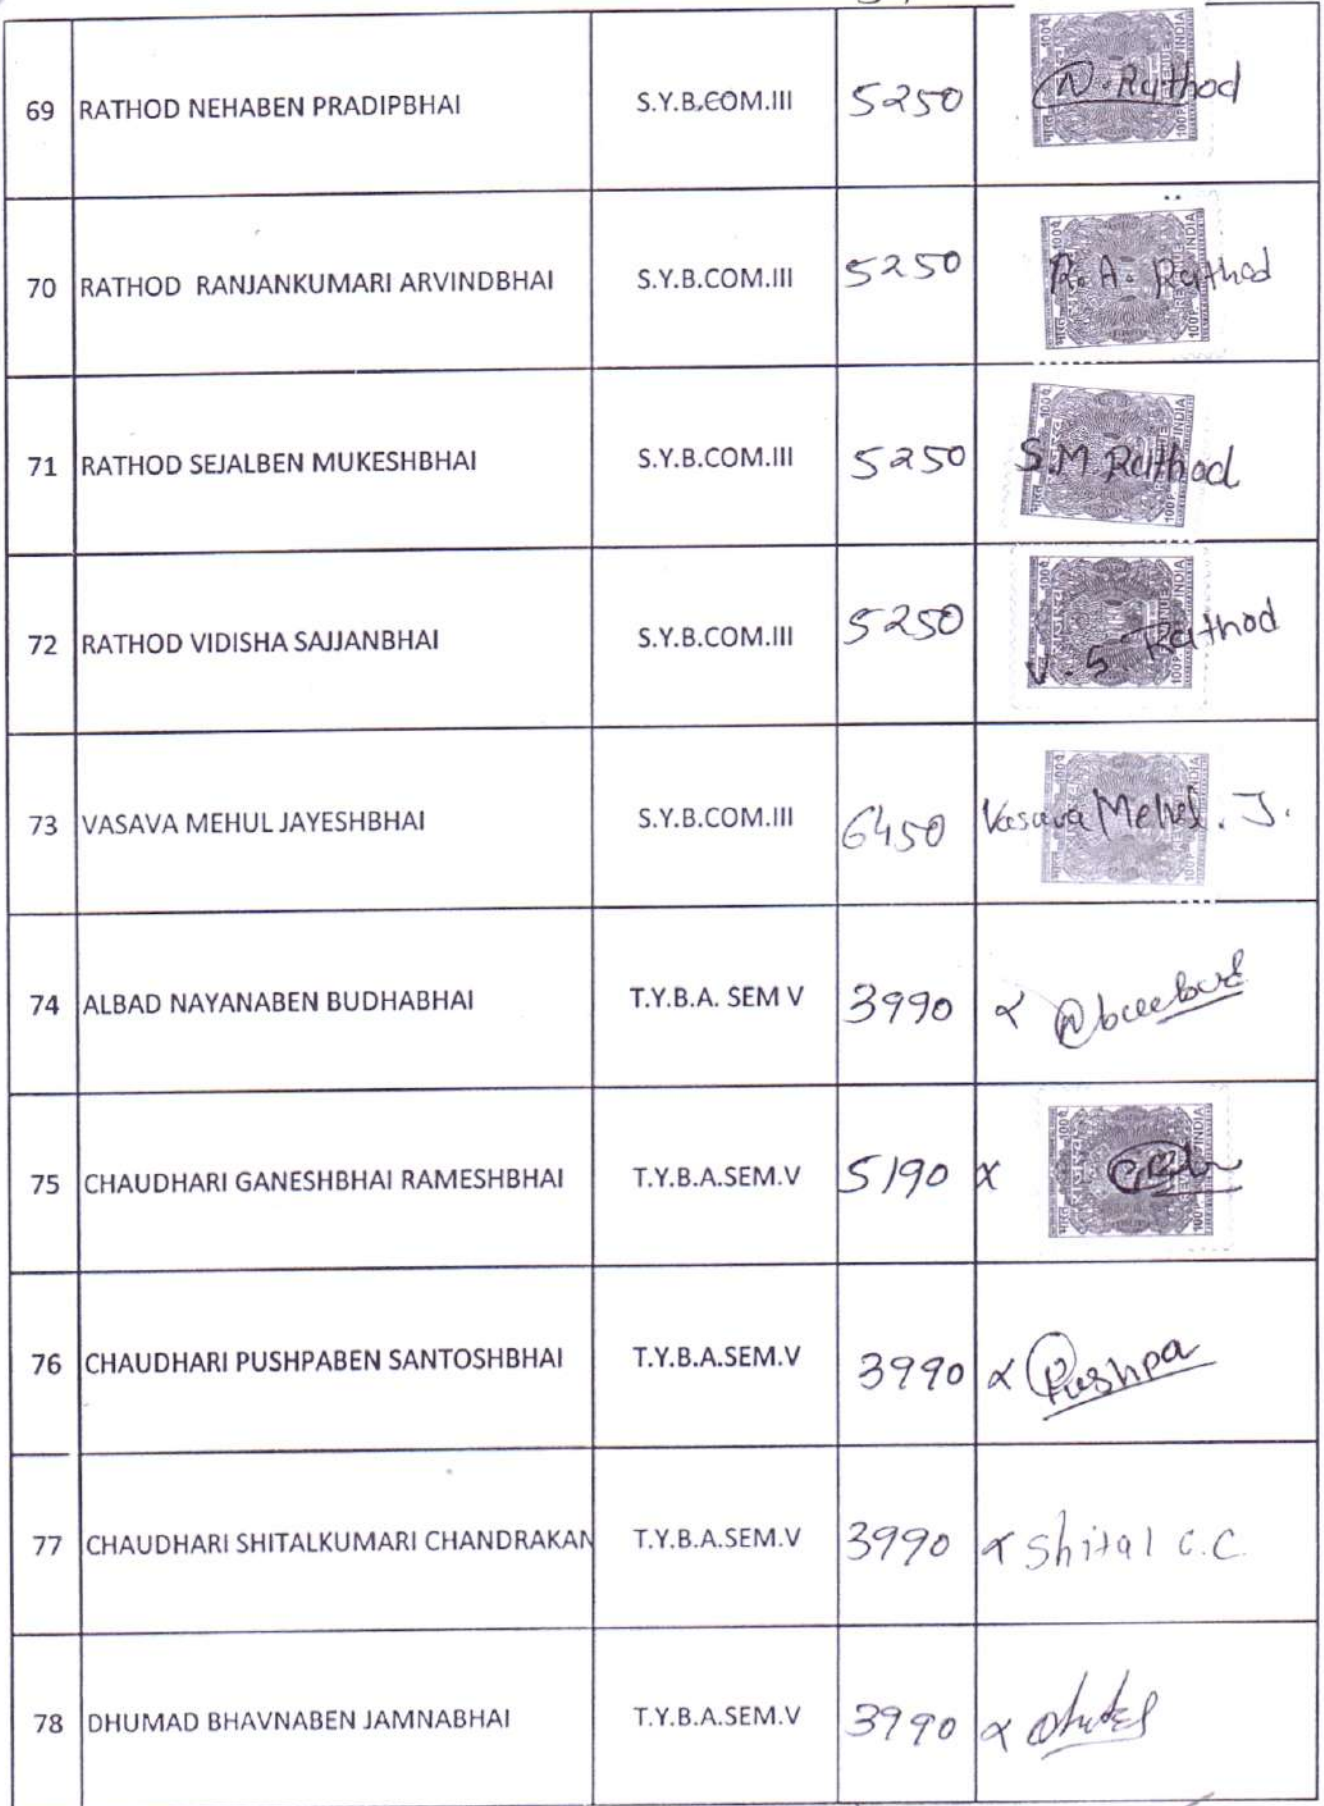 69 RATHOD NEHABEN PRADIPBHAI S.Y.B.COM.III 5250 N. Rathod
70 RATHOD RANJANKUMARI ARVINDBHAI S.Y.B.COM.III 5250 R. A. Rathod
71 RATHOD SEJALBEN MUKESHBHAI S.Y.B.COM.III 5250 S.M. Rathod
72 RATHOD VIDISHA SAJJANBHAI S.Y.B.COM.III 5250 V. S. Rathod
73 VASAVA MEHUL JAYESHBHAI S.Y.B.COM.III 6450 Vasava Mehul. J.
74 ALBAD NAYANABEN BUDHABHAI T.Y.B.A. SEM V 3990
75 CHAUDHARI GANESHBHAI RAMESHBHAI T.Y.B.A.SEM.V 5190
76 CHAUDHARI PUSHPABEN SANTOSHBHAI T.Y.B.A.SEM.V 3990 Pushpa
77 CHAUDHARI SHITALKUMARI CHANDRAKAN T.Y.B.A.SEM.V 3990 Shital C.C.
78 DHUMAD BHAVNABEN JAMNABHAI T.Y.B.A.SEM.V 3990